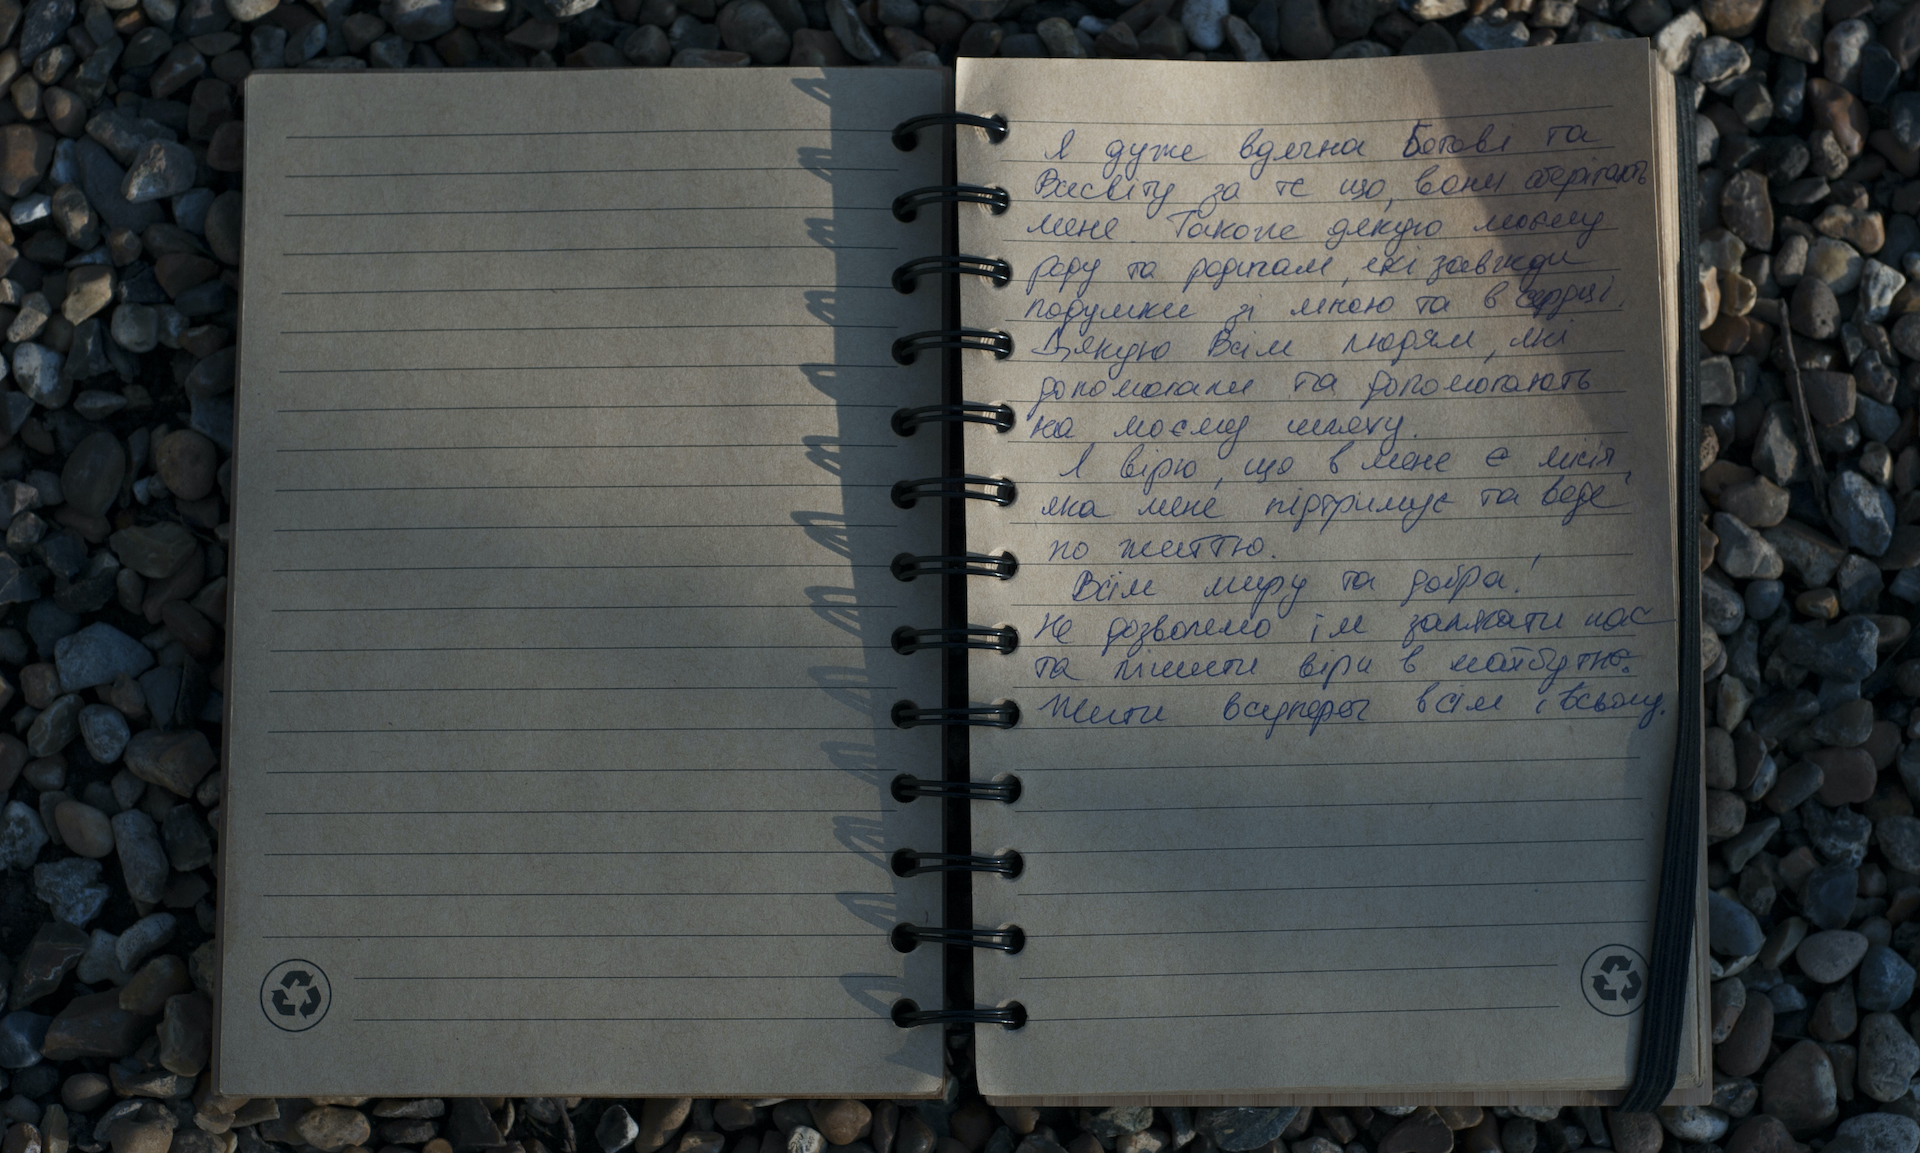 Я дуже вдячна Богові та
Всесвіту за те що, вони зберігають
мене. Також дякую моєму
роду та родичам, які завжди
подумки зі мною та в серці.
Дякую Всім людям, які
допомогали та допомогають
на моєму шляху.
Я вірю, що в мене є місія,
яка мене підтримує та веде
по життю.
Всім миру та добра!
Не дозволемо їм залякати нас
та лишити віри в майбутнє.
Жити всупереч всім і всьому.